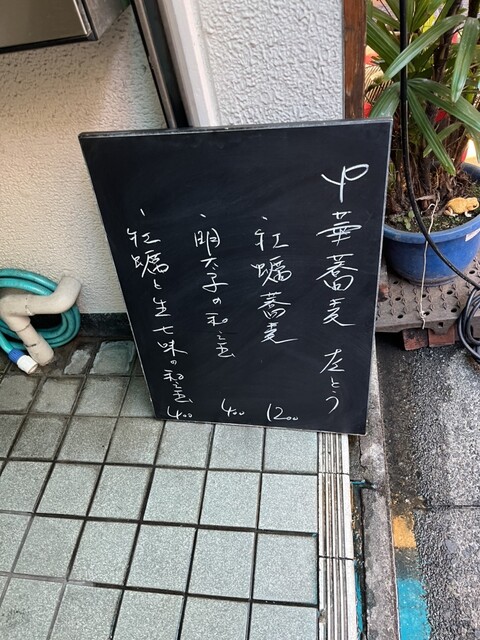 中華蕎麦 左とう
牡蠣蕎麦 1200
、明太子の和え玉 400
、牡蠣と生七味の和え玉 400